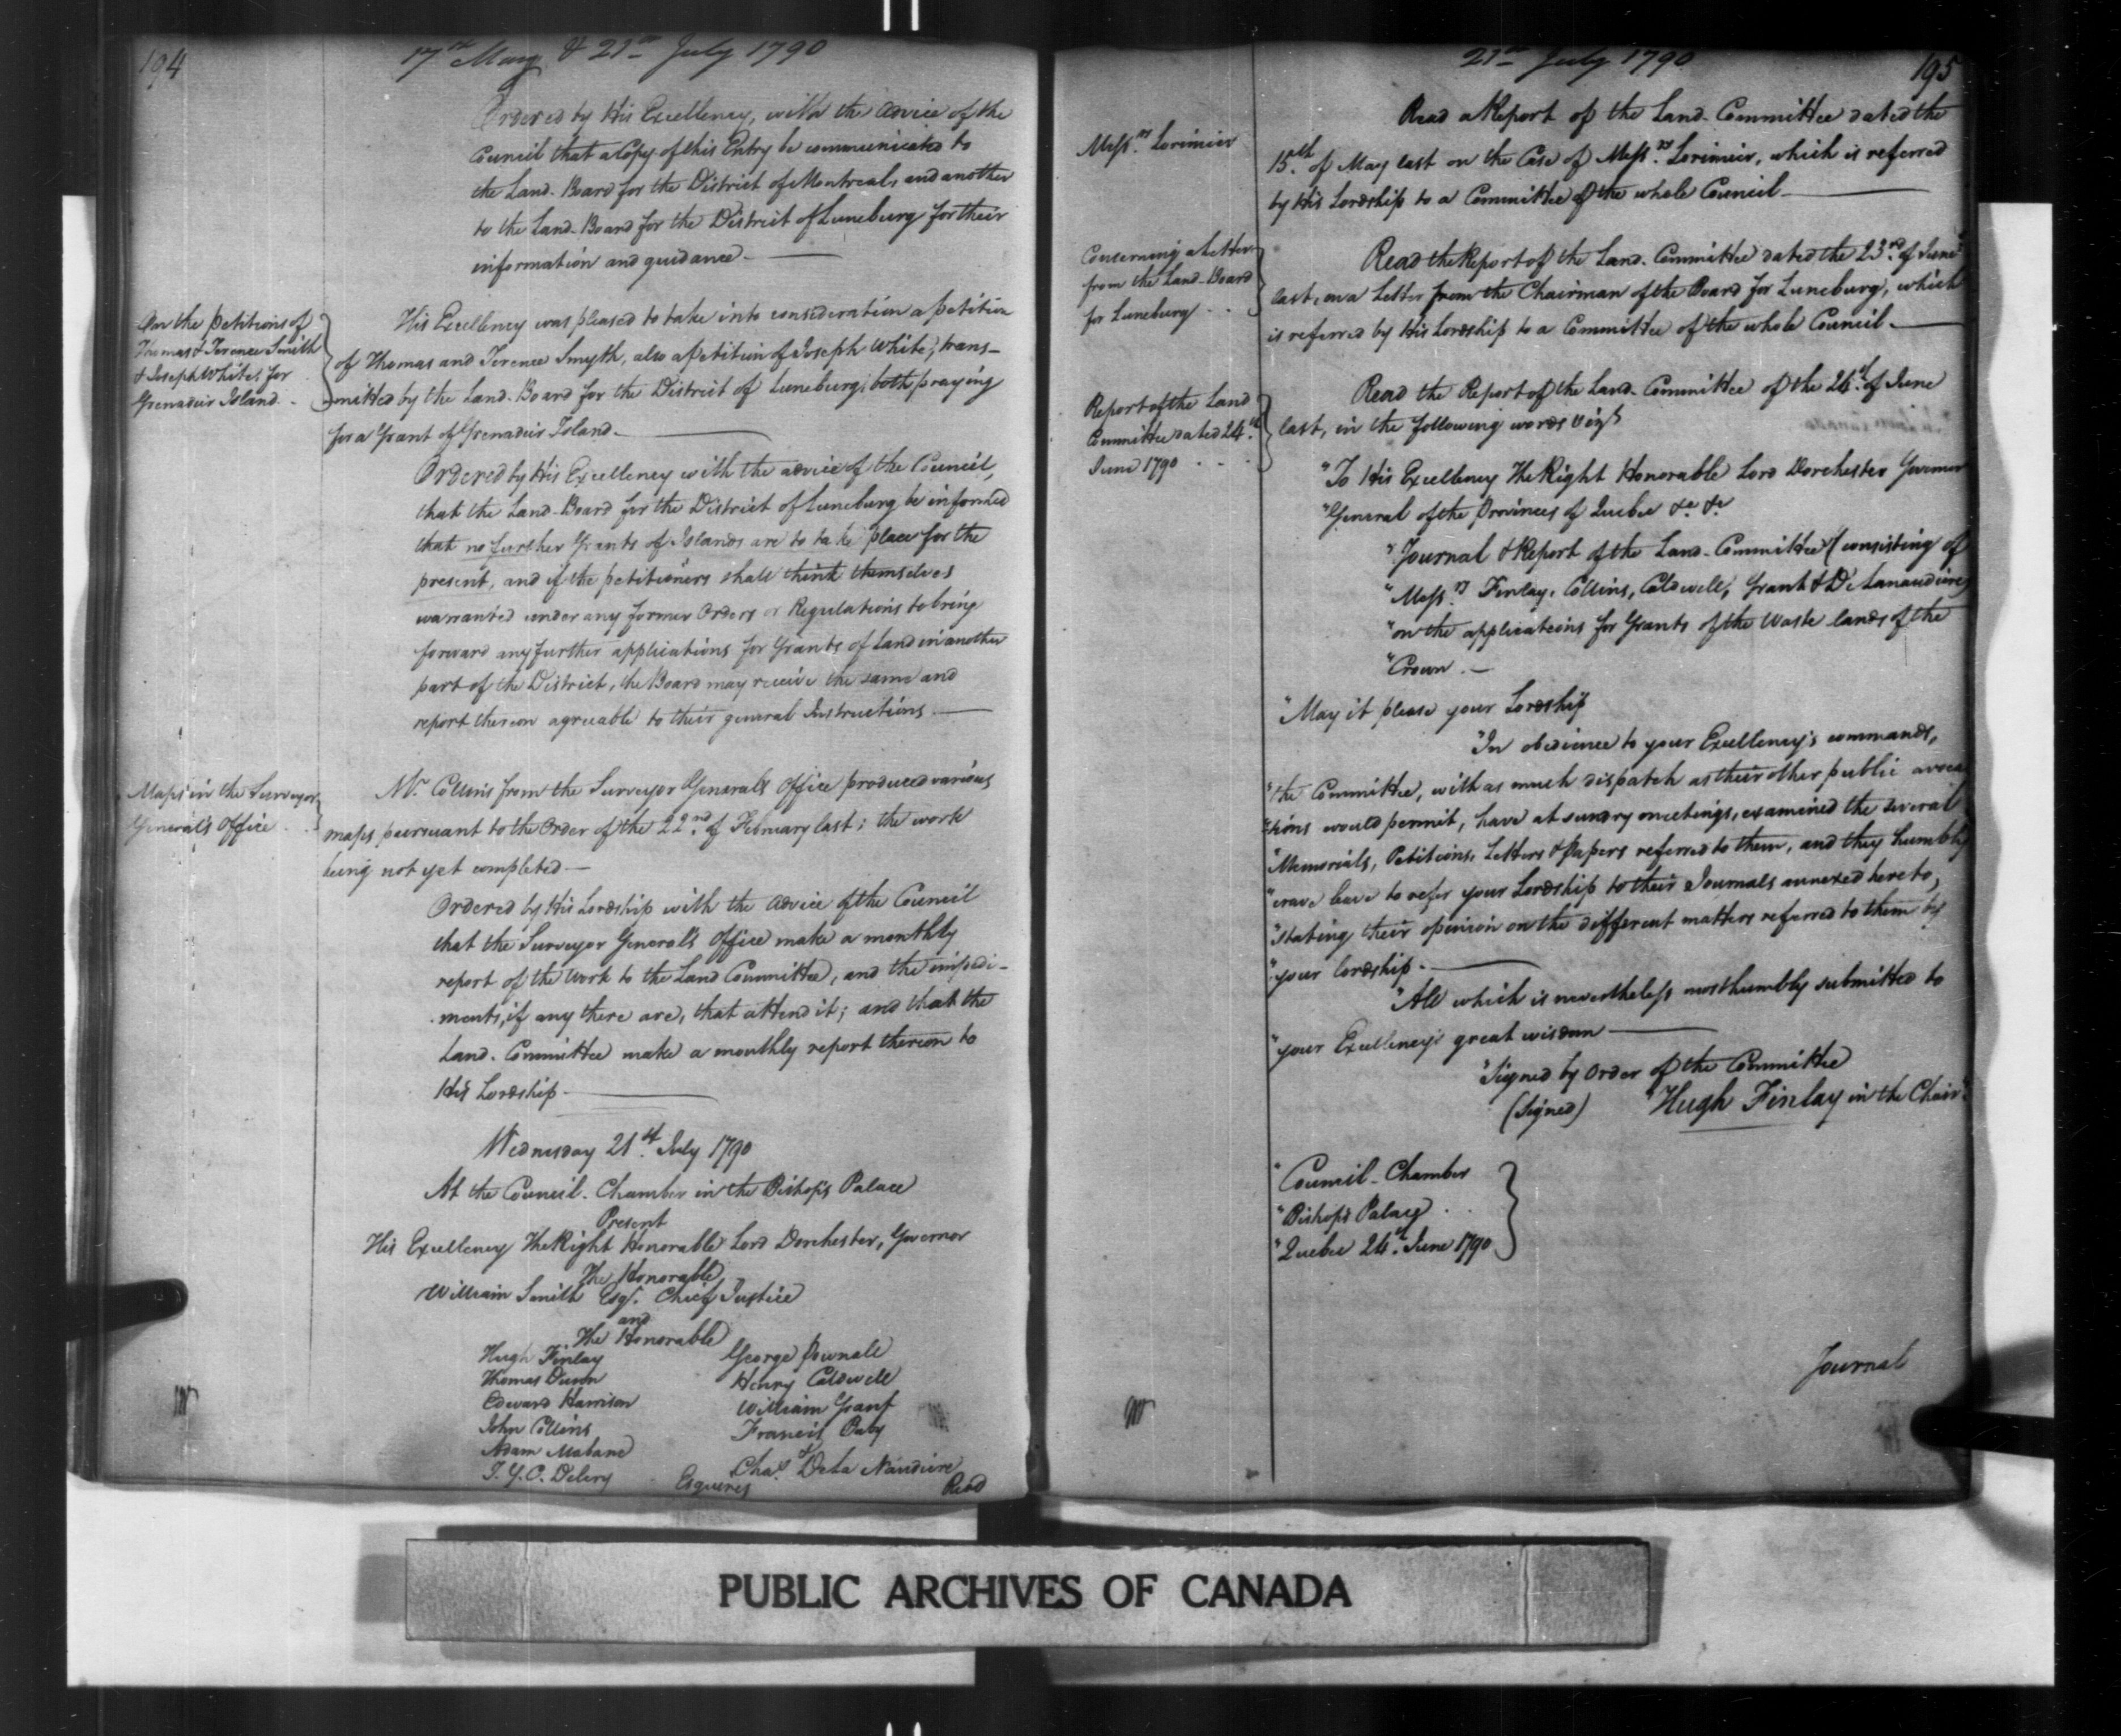 194
17th May & 21st July 1790
Ordered by His Excellency, with the advice of the
Council that a Copy of this Entry be communicated to
the Land-Board for the District of Montreal, and another
to the Land-Board for the District of Luneburg for their
information and guidance.
On the petitions of
Thomas & Terence Smith
& Joseph White, for
Grenadier Island.
His Excellency was pleased to take into consideration a petition
of Thomas and Terence Smyth, also a petition of Joseph White, trans-
mitted by the Land-Board for the District of Luneburg; both praying
for a Grant of Grenadier Island.
Ordered by His Excellency with the advice of the Council,
that the Land-Board for the District of Luneburg be informed
that no further Grants of Islands are to take place for the
present, and if the petitioners shall think themselves
warranted under any former Orders or Regulations to bring
forward any further applications for Grants of Land in another
part of the District, the Board may receive the same and
report thereon agreeable to their general Instructions.
Maps in the Surveyor
General's Office
Mr. Collins from the Surveyor General's Office produced various
maps pursuant to the Order of the 22nd of February last; the work
being not yet completed—
Ordered by His Lordship with the Advice of the Council
that the Surveyor General's Office make a monthly
report of the Work to the Land Committee, and the impedi-
ments, if any there are, that attend it; and that the
Land-Committee make a monthly report thereon to
His Lordship.
Wednesday 21st July 1790
At the Council-Chamber in the Bishop's Palace
Present
His Excellency The Right Honorable Lord Dorchester, Governor
The Honorable
William Smith Esqr. Chief Justice
and
The Honorable
Hugh Finlay
George Pownall
Thomas Dunn
Henry Caldwell
Edward Harrison
William Grant
John Collins
Francis Baby
Adam Mabane
Chas. De la Naudiere
J. G. C. Delery
Esquires
Read
21st July 1790
195
Messrs. Lorimier
Read a Report of the Land-Committee dated the
15th of May last on the Case of Messrs. Lorimier, which is referred
by His Lordship to a Committee of the whole Council
Concerning a Letter
from the Land-Board
for Luneburg
Read the Report of the Land-Committee dated the 23rd of June
last, on a Letter from the Chairman of the Board for Luneburg, which
is referred by His Lordship to a Committee of the whole Council.
Report of the Land
Committee dated 24th
June 1790
Read the Report of the Land-Committee of the 24th of June
last, in the following words vizt
"To His Excellency The Right Honorable Lord Dorchester Governor
"General of the Provinces of Quebec &c &c
"Journal & Report of the Land-Committee (consisting of
"Messrs Finlay, Collins, Caldwell, Grant & De Lanaudiere)
"on the applications for Grants of the Waste lands of the
"Crown.—
"May it please your Lordship
"In obedience to your Excellency's commands,
"the Committee, with as much dispatch as their other public avoca
"tions would permit, have at sundry meetings, examined the several
"Memorials, Petitions, Letters & Papers referred to them, and they humbly
"crave leave to refer your Lordship to their Journals annexed hereto,
"stating their opinion on the different matters referred to them by
"your lordship.
"All which is nevertheless most humbly submitted to
"your Excellency's great wisdom
"Signed by Order of the Committee
(Signed) "Hugh Finlay in the Chair"
"Council-Chamber
"Bishop's Palace
"Quebec 24th June 1790
Journal
PUBLIC ARCHIVES OF CANADA